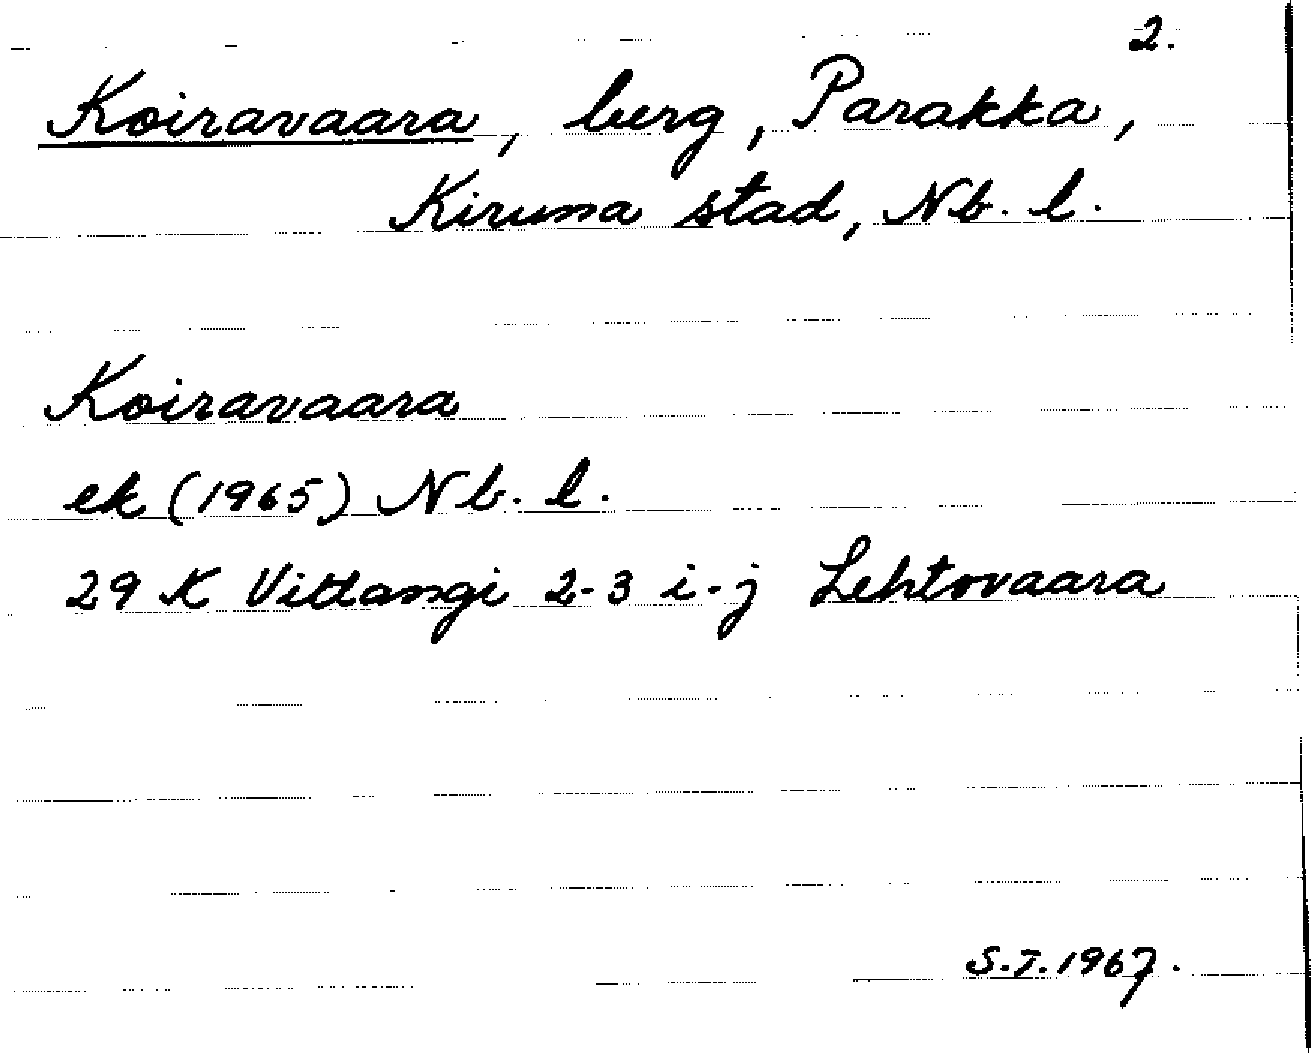 2.
Koiravaara, berg, Parakka,
Kiruna stad, Nb. l.
Koiravaara
ek (1965) Nb. l.
29 K Vittangi 2-3 i-j Lehtovaara
S.T. 1967.